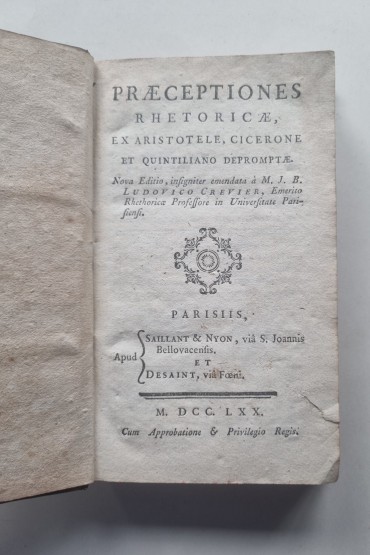 PRÆCEPTIONES
RHETORICÆ,
EX ARISTOTELE, CICERONE
ET QUINTILIANO DEPROMPTÆ.
Nova Editio, insigniter emendata à M. J. B.
LUDOVICO CREVIER, Emerito
Rhethoricæ Professore in Universitate Pari-
siensi.
PARISIIS,
Apud
SAILLANT & NYON, viâ S. Joannis
Bellovacensis.
ET
DESAINT, viâ Fœni.
M. DCC. LXX.
Cum Approbatione & Privilegio Regis.